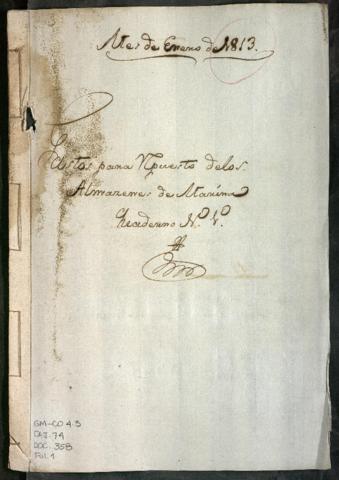 Mes de Enero de 1813.
Gastos para Rpuesto delos
Almazenes de Marina
Quaderno N.º 1.º
GM-CO 4.3
CAJ. 74
DOC. 358
Fol. 1